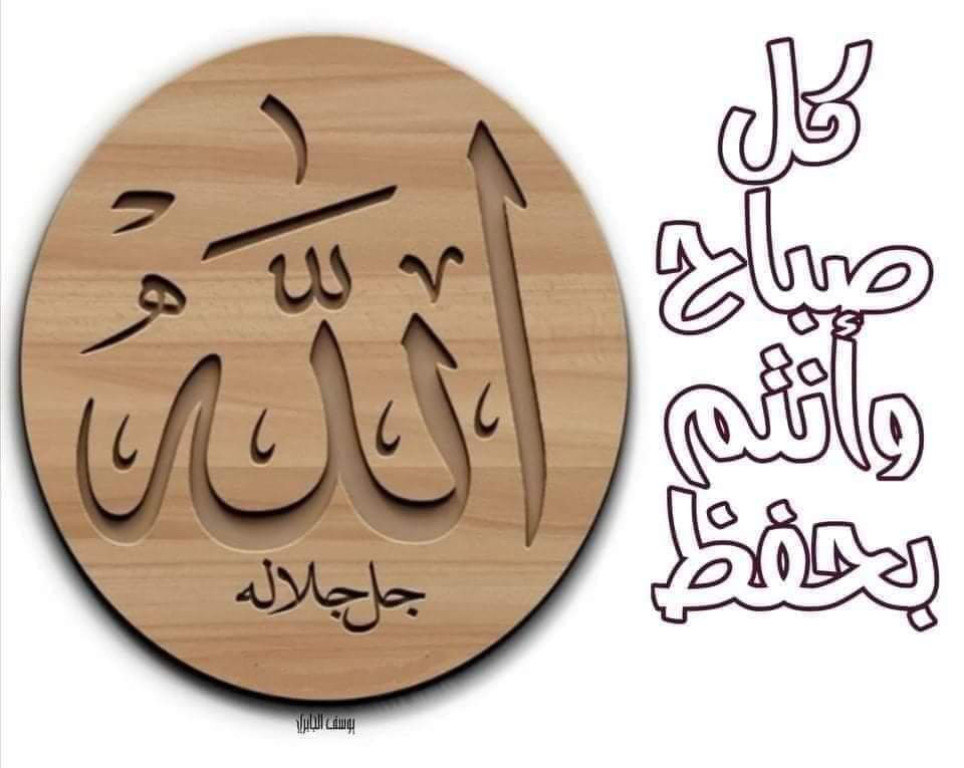 كل
صباح
وأنتم
بحفظ
الله
جل جلاله
يوسف الجابري